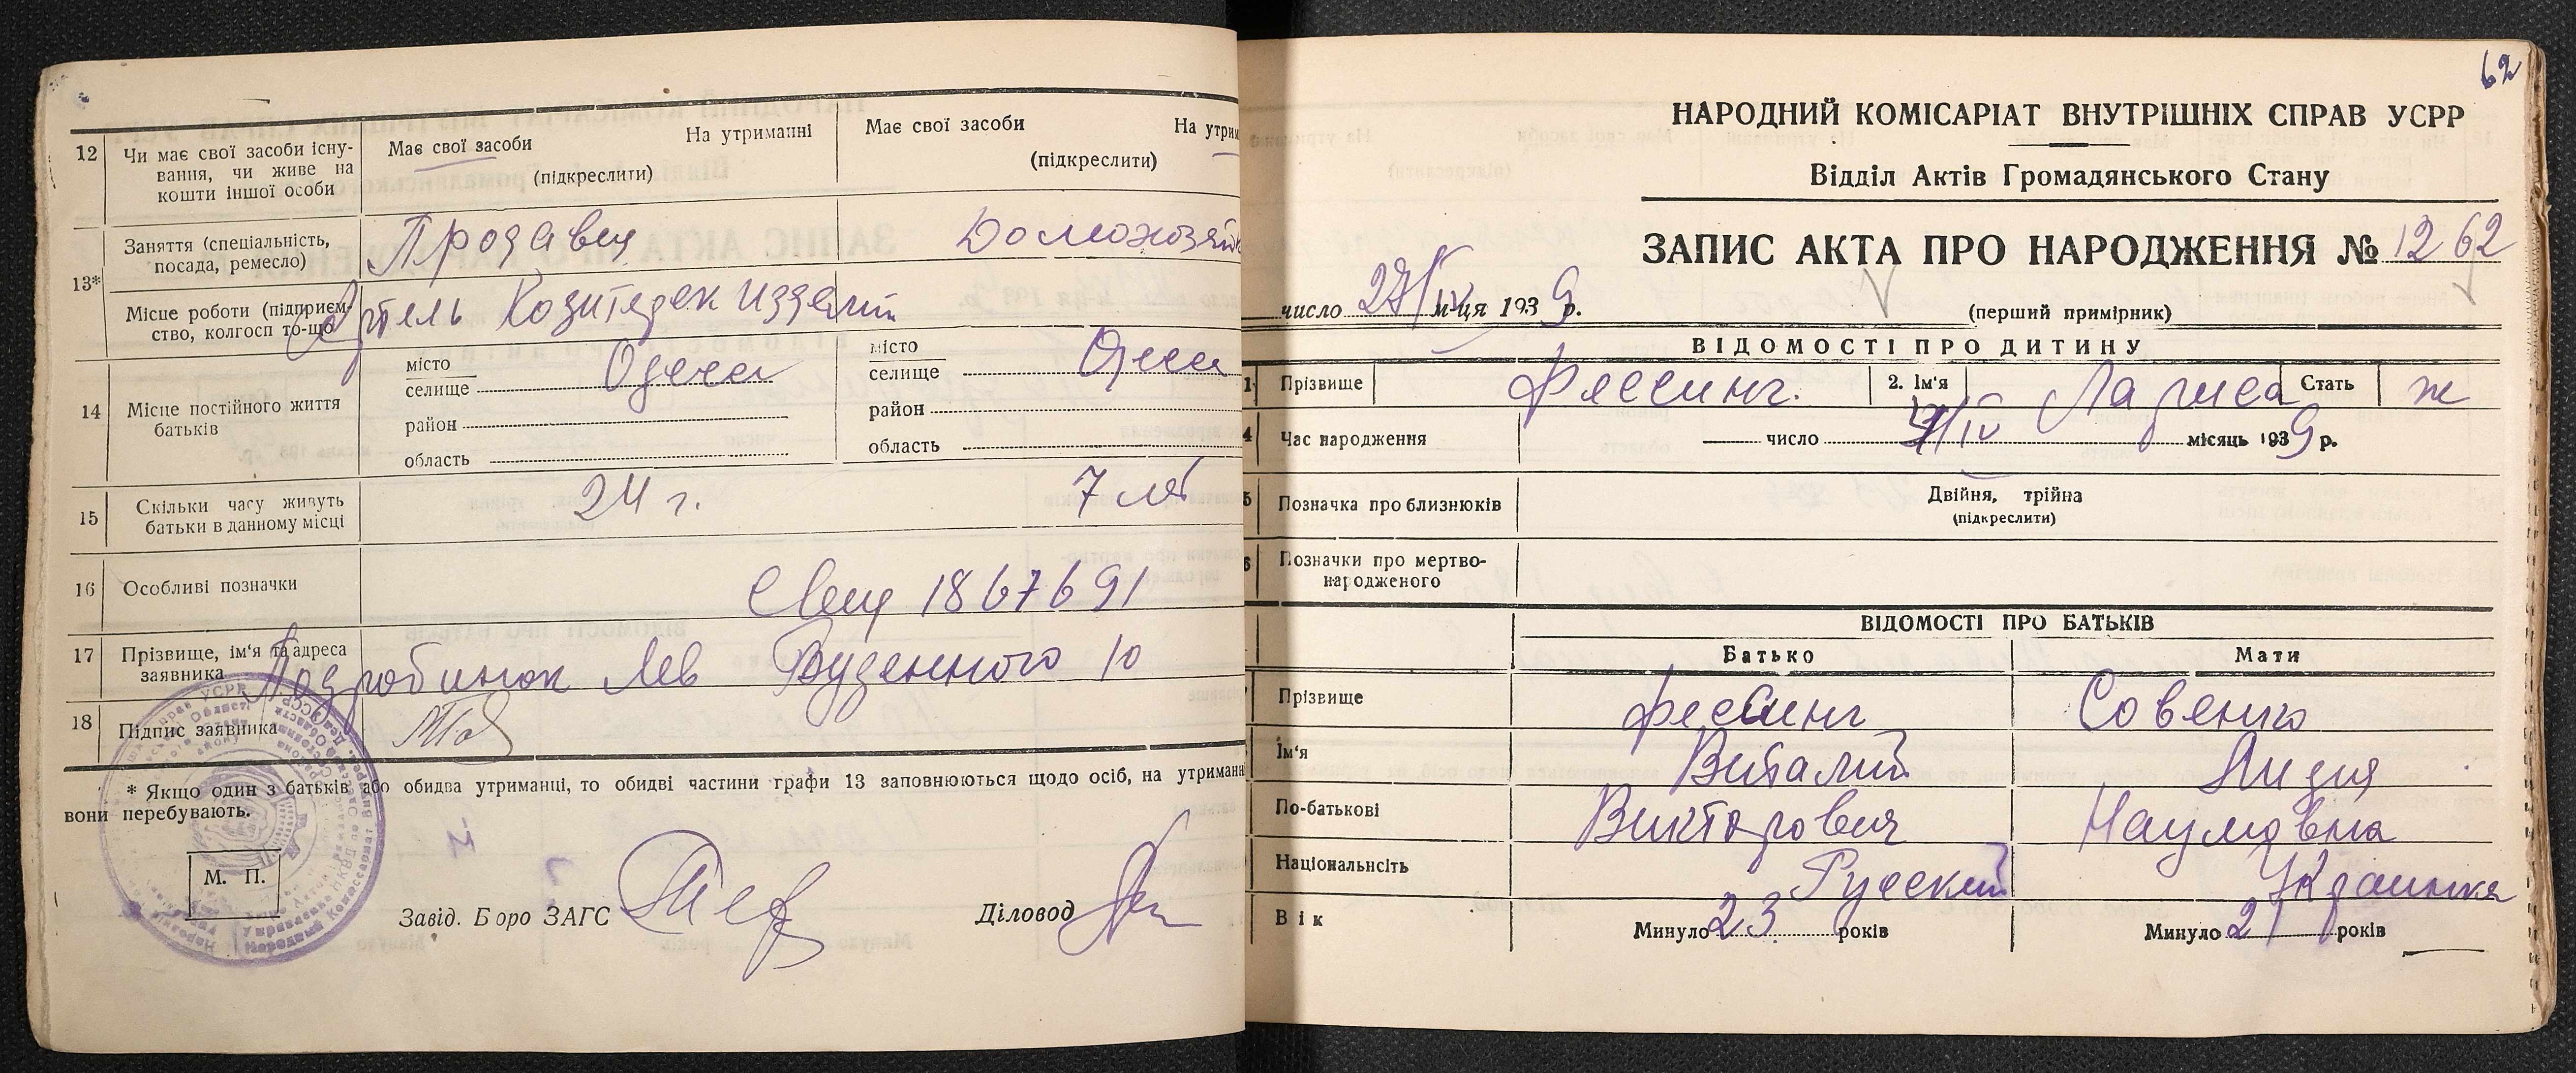 12 Чи має свої засоби існу-
вання, чи живе на
кошти іншої особи
Має свої засоби На утриманні
(підкреслити)
Має свої засоби На утрим
(підкреслити)
13* Заняття (спеціальність,
посада, ремесло)
Продавец Домохозяйк
Місце роботи (підприєм-
ство, колгосп то-що
Артель
14 Місце постійного життя
батьків
місто
селище Одесса
район
область
місто
селище Одесса
район
область
15 Скільки часу живуть
батьки в данному місці
24 г. 7 лет
16 Особливі позначки
Свид 1867691
17 Прізвище, ім'я та адреса
заявника
Лев Буденного 10
18 Підпис заявника
* Якщо один з батьків або обидва утриманці, то обидві частини графи 13 заповнюються щодо осіб, на утриманн
вони перебувають.
М. П.
Завід. Боро ЗАГС Діловод
62
НАРОДНИЙ КОМІСАРІАТ ВНУТРІШНІХ СПРАВ УСРР
Відділ Актів Громадянського Стану
ЗАПИС АКТА ПРО НАРОДЖЕННЯ № 1262
число 27/IV м-ця 1939 р.
(перший примірник)
ВІДОМОСТІ ПРО ДИТИНУ
1 Прізвище Фессинг. 2. Ім'я Лариса Стать ж
4 Час народження число /IV місяць 1939 р.
5 Позначка про близнюків Двійня, трійна
(підкреслити)
6 Позначки про мертво-
народженого
ВІДОМОСТІ ПРО БАТЬКІВ
Батько Мати
Прізвище Фессинг Совенко
Ім'я Виталий Лидия
По-батькові Викторович Наумовна
Національнсіть Русский Украинка
Вік Минуло 23 років Минуло 21 років